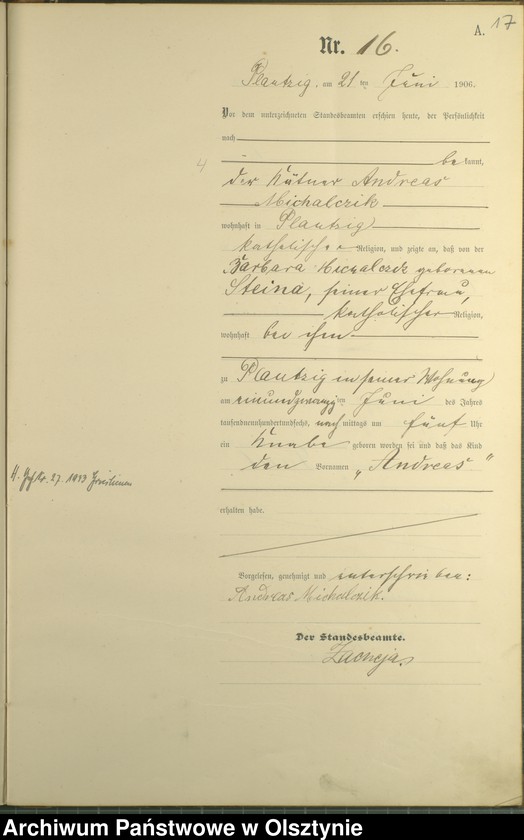 A. 17
Nr. 16.
Plautzig, am 21 ten Juni 1906.
Vor dem unterzeichneten Standesbeamten erschien heute, der Persönlichkeit
nach
bekannt,
der Kätner Andreas
Michalczik
wohnhaft in Plautzig
katholischer Religion, und zeigte an, daß von der
Barbara Michalczik geborenen
Steina, seiner Ehefrau,
katholischer Religion,
wohnhaft bei ihm
zu Plautzig in seiner Wohnung
am einundzwanzigten Juni des Jahres
tausendneunhundertundsechs, nachmittags um fünf Uhr
ein Knabe geboren worden sei und daß das Kind
den Vornamen „Andreas"
erhalten habe.
Vorgelesen, genehmigt und unterschrieben:
Andreas Michalczik.
Der Standesbeamte.
4
27. 1933
Archiwum Państwowe w Olsztynie